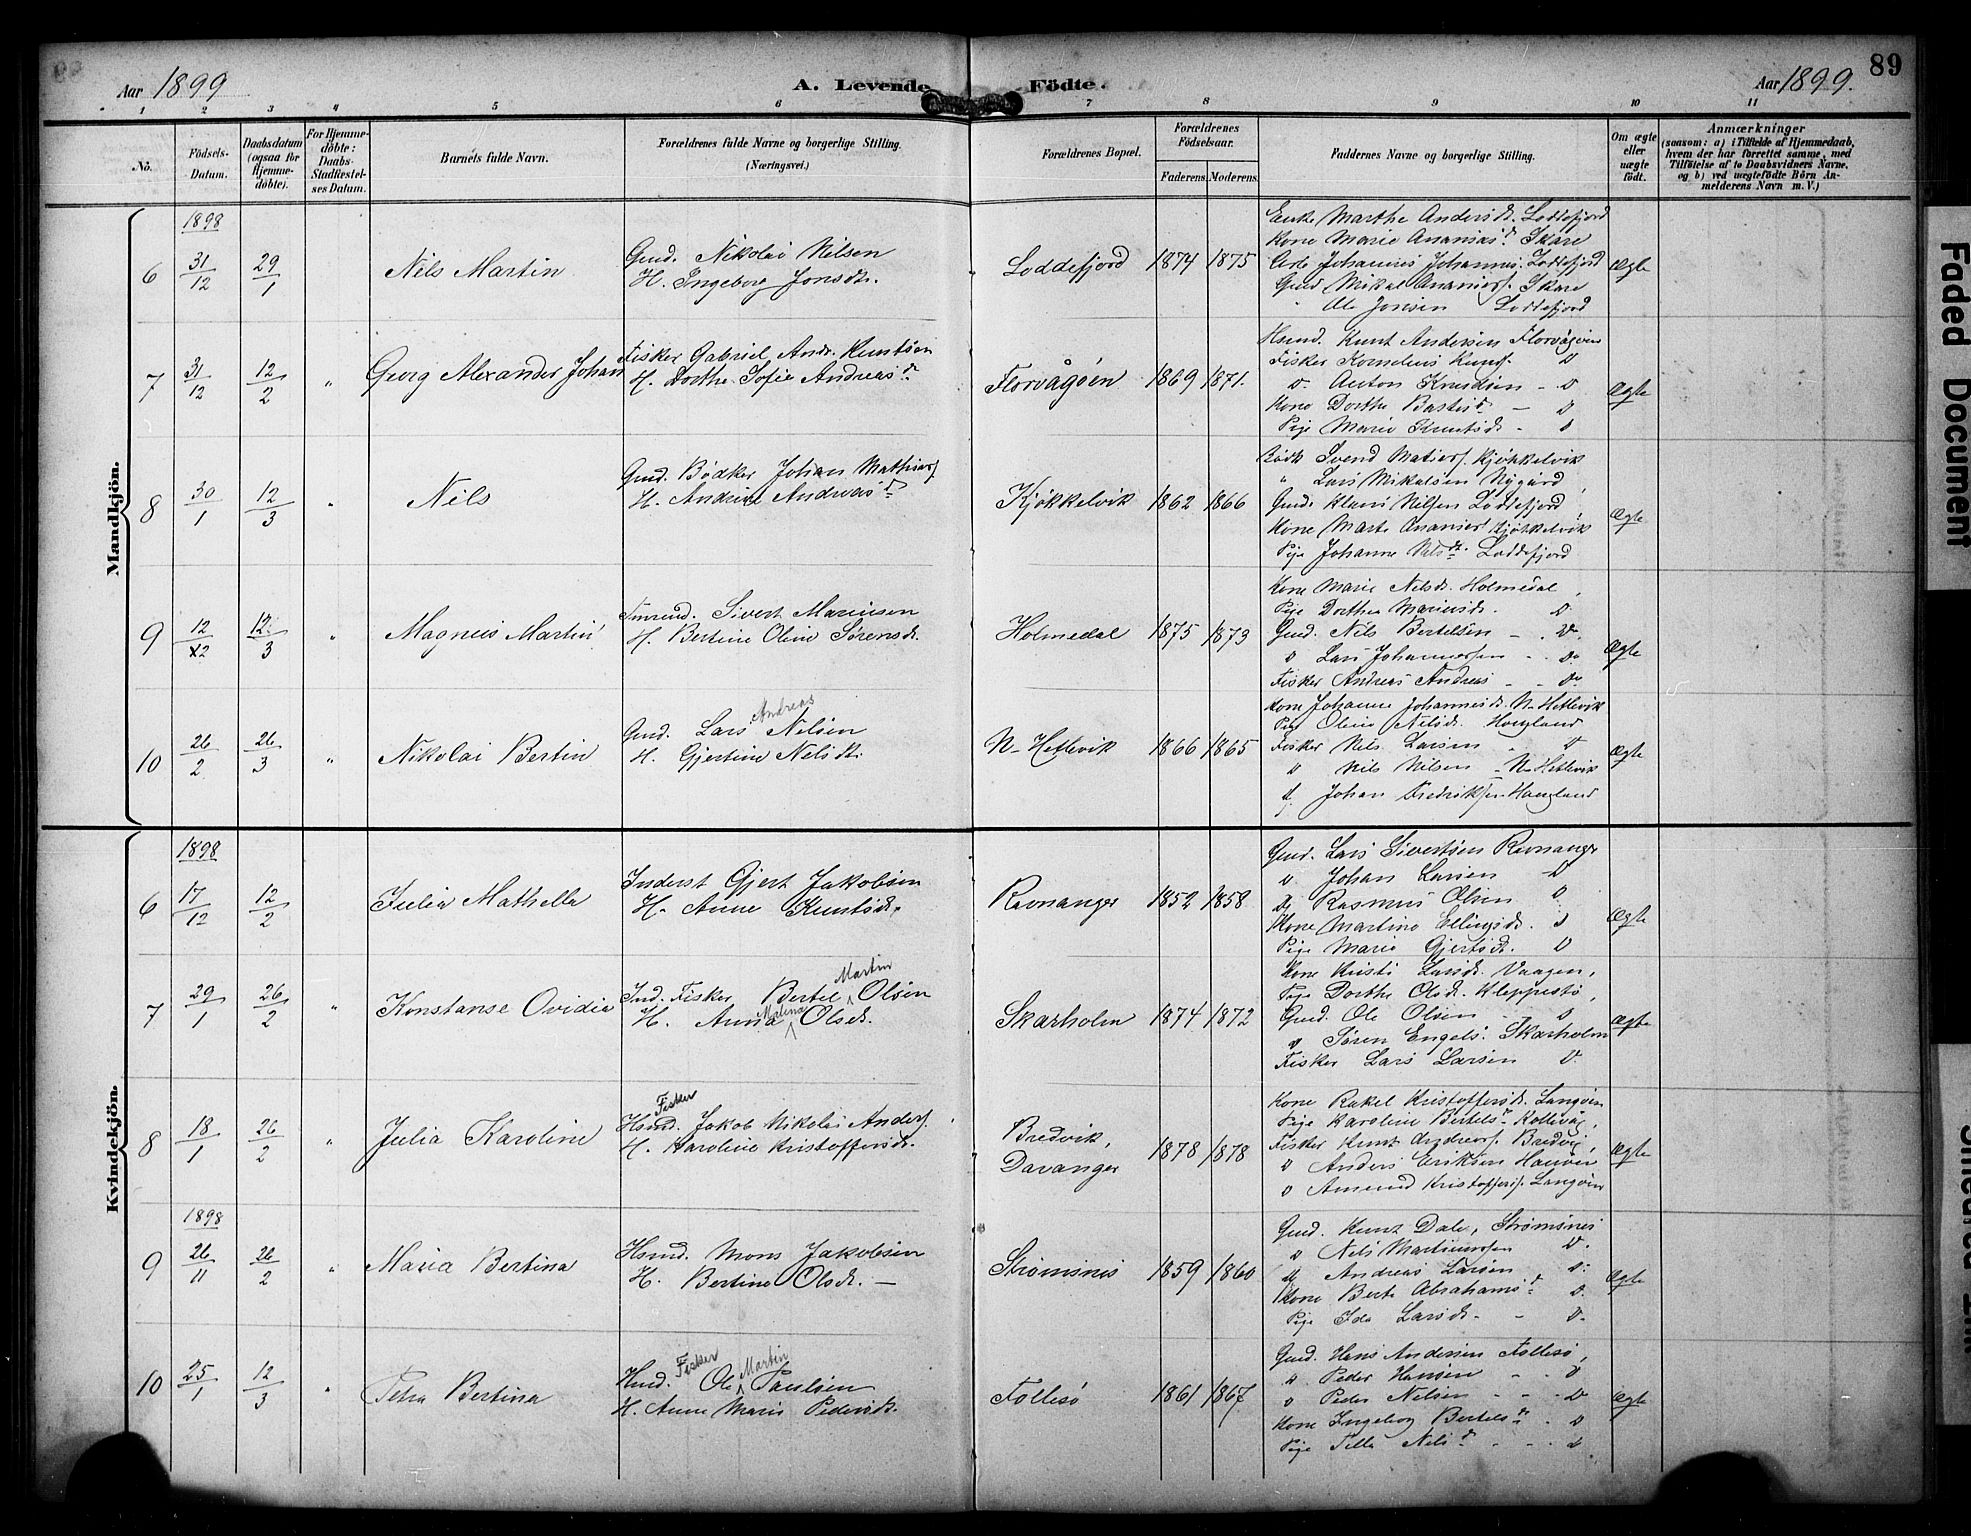 89
Aar 1899
A. Levende Födte.
Aar 1899.
1 2 3 4 5 6 7 8 9 10 11
No.
Födsels-Datum.
Daabsdatum (ogsaa for Hjemmedöbte).
For Hjemmedöbte: Daabs-Stadfestelses Datum.
Barnets fulde Navn.
Forældrenes fulde Navne og borgerlige Stilling. (Næringsvei.)
Forældrenes Bopæl.
Forældrenes Födselsaar.
Faderens. Moderens.
Faddernes Navne og borgerlige Stilling.
Om ægte eller uægte födt.
Anmærkninger
(saasom: a) i Tilfælde af Hjemmedaab, hvem der har forrettet samme, med Tilföielse af to Daabsvidners Navne, og b) ved uægtefödte Börn Anmelderens Navn m. V.)
Mandkjön.
1898
6 31/12 29/1 Nils Martin
Gmd. Nikolai Nilsen
H. Ingeborg Jonsdr.
Loddefjord 1874 1875
Enke Marthe Andersd. Loddefjord
Kone Marie Ananiasd. Skare
Johannes Johannes. Loddefjord
Gmd Mikal Ananias. Skare
Ole Jonsen Loddefjord
Ægte
7 31/12 12/2 " Georg Alexander Johan
Fisker Gabriel Andr. Knutsen
H. Dorthe Sofie Andreasd.
Florvågöen 1869 1871.
Hsmd. Knut Andersen Florvågöen
Fisker Kornelius Knuts. D
D. Anton Knudsen - D
Kone Dorthe Bastisd. - D
Pige Marie Knutsd. - D
Ægte
8 30/1 12/3 " Nils
Gmd. Bödker Johan Mathias.
H. Andrine Andreasd.
Kjökkelvik 1862 1866
Bödk Svend Matias. Kjökkelvik
" Lars Mikalsen Nygard
Gmd. Klaus Nilsen Loddefjord
Kone Marte Ananias. Kjökkelvik
Pige Johanne Nilsd. Loddefjord
Ægte
9 12/12 12/3 " Magnus Martin
Sivert Mariusen
H. Bertine Oline Sörensd.
Holmedal 1875 1873
Kone Marie Nilsd. Holmedal
Pige Dorthea Mariusd. D.
Gmd. Nils Bertelsen - D.
D Lars Johannessen - D.
Fisker Andreas Andreas - D.
Ægte
10 26/2 26/3 " Nikolai Bertin
Andreas
Gmd. Lars Nilsen
H. Gjertine Nilsdr.
N. Hetlevik 1866 1865
Kone Johanne Johannesd. N. Hetlevik
Pige Oline Nilsd. Haugland
Fisker Nils Larsen - D
D Nils Nilsen - N. Hetlevik
D. Johan Fredriksen Haugland
Ægte
Kvindekjön.
1898
6 17/12 12/2 Julia Mathella
Inderst Gjert Jakobsen
H. Anne Knutsd.
Ravnanger 1852 1858
Gmd. Lars Sivertsen Ravnanger
D Johan Larsen D
D Rasmus Olsen D
Kone Martine Ellingsd. D
Pige Marie Gjertsd. D
Ægte
7 29/1 26/2 " Konstanse Ovidia
Martin
Ind. Fisker Bertel Olsen
Malena
H. Anna Olsd.
Skarholm 1874 1872
Kone Kristi Larsd. Vaagen,
Pige Dorthe Olsd. Kleppestö,
Gmd. Ole Olsen - D
D Sören Engels. Skarholm
Fisker Lars Larsen D.
Ægte
8 18/1 26/2 " Julia Karoline
Fisker
Hsmd. Jakob Nikolai Anders.
H. Karoline Kristoffersd.
Bredvik,
Davanger 1878 1878
Kone Rakel Kristoffersd. Langöen
Pige Karoline Bertelsd. Kollevåg,
Fisker Knut Andreas. Bredvig
D Anders Eriksen Hanöen
D Amund Kristoffers. Langöen
Ægte
1898
9 26/11 26/2 " Maria Bertina
Hsmd. Mons Jakobsen
H. Bertine Olsd. -
Strömsnes 1859 1860
Gmd. Knut Dale, Strömsnes
D Nils Martinussen D.
D Andreas Larsen D.
Kone Berte Abrahamsd. D.
Pige Ida Larsd. - D.
Ægte
10 25/1 12/3 " Petra Bertina
Fisker Martin
Hmd. Ole Paulsen
H. Anne Marie Pedersd.
Follesö 1861 1867.
Gmd. Hans Andersen Follesö,
D. Peder Hansen - D
D Peder Nilsen - - D
Kone Ingeborg Bertelsd. - D
Pige Tella Nilsd. - - D
Ægte
Faded Document